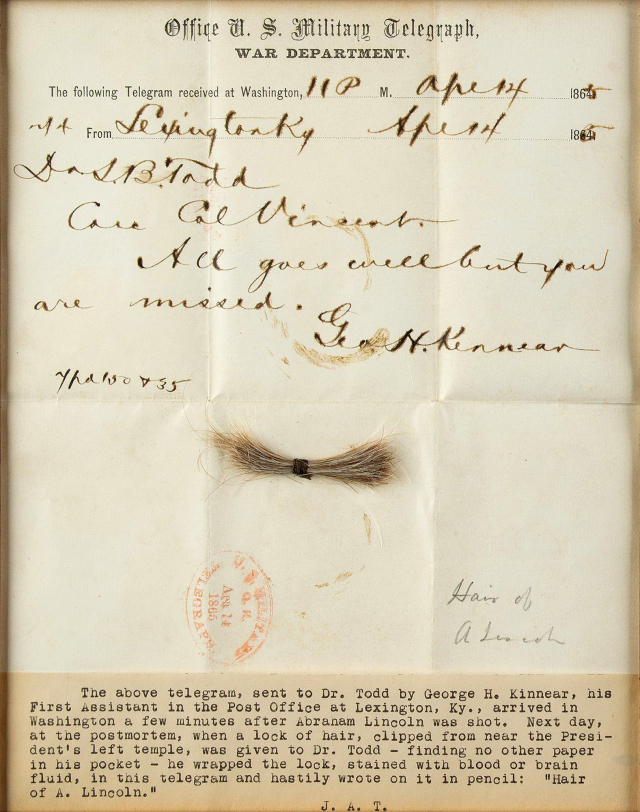 Office U. S. Military Telegraph,
WAR DEPARTMENT.
The following Telegram received at Washington, 11 P M. Apr 14 1865
From Lexington Ky Apr 14 1865
Dr L.B. Todd
Care Col Vincent.
All goes well but you
are missed.
Geo. H. Kinnear
Hair of
A Lincoln
U.S. MILITARY
Apr 14
1865
TELEGRAPH
The above telegram, sent to Dr. Todd by George H. Kinnear, his
First Assistant in the Post Office at Lexington, Ky., arrived in
Washington a few minutes after Abraham Lincoln was shot. Next day,
at the postmortem, when a lock of hair, clipped from near the Presi-
dent's left temple, was given to Dr. Todd - finding no other paper
in his pocket - he wrapped the lock, stained with blood or brain
fluid, in this telegram and hastily wrote on it in pencil: "Hair
of A. Lincoln."
J. A. T.